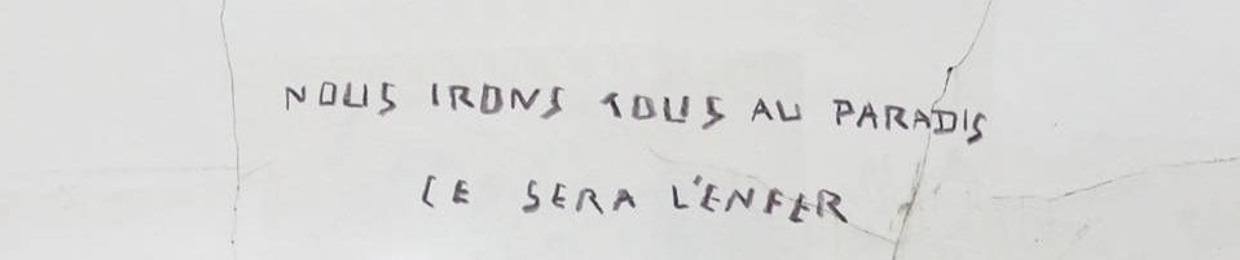 NOUS IRONS TOUS AU PARADIS
CE SERA L'ENFER